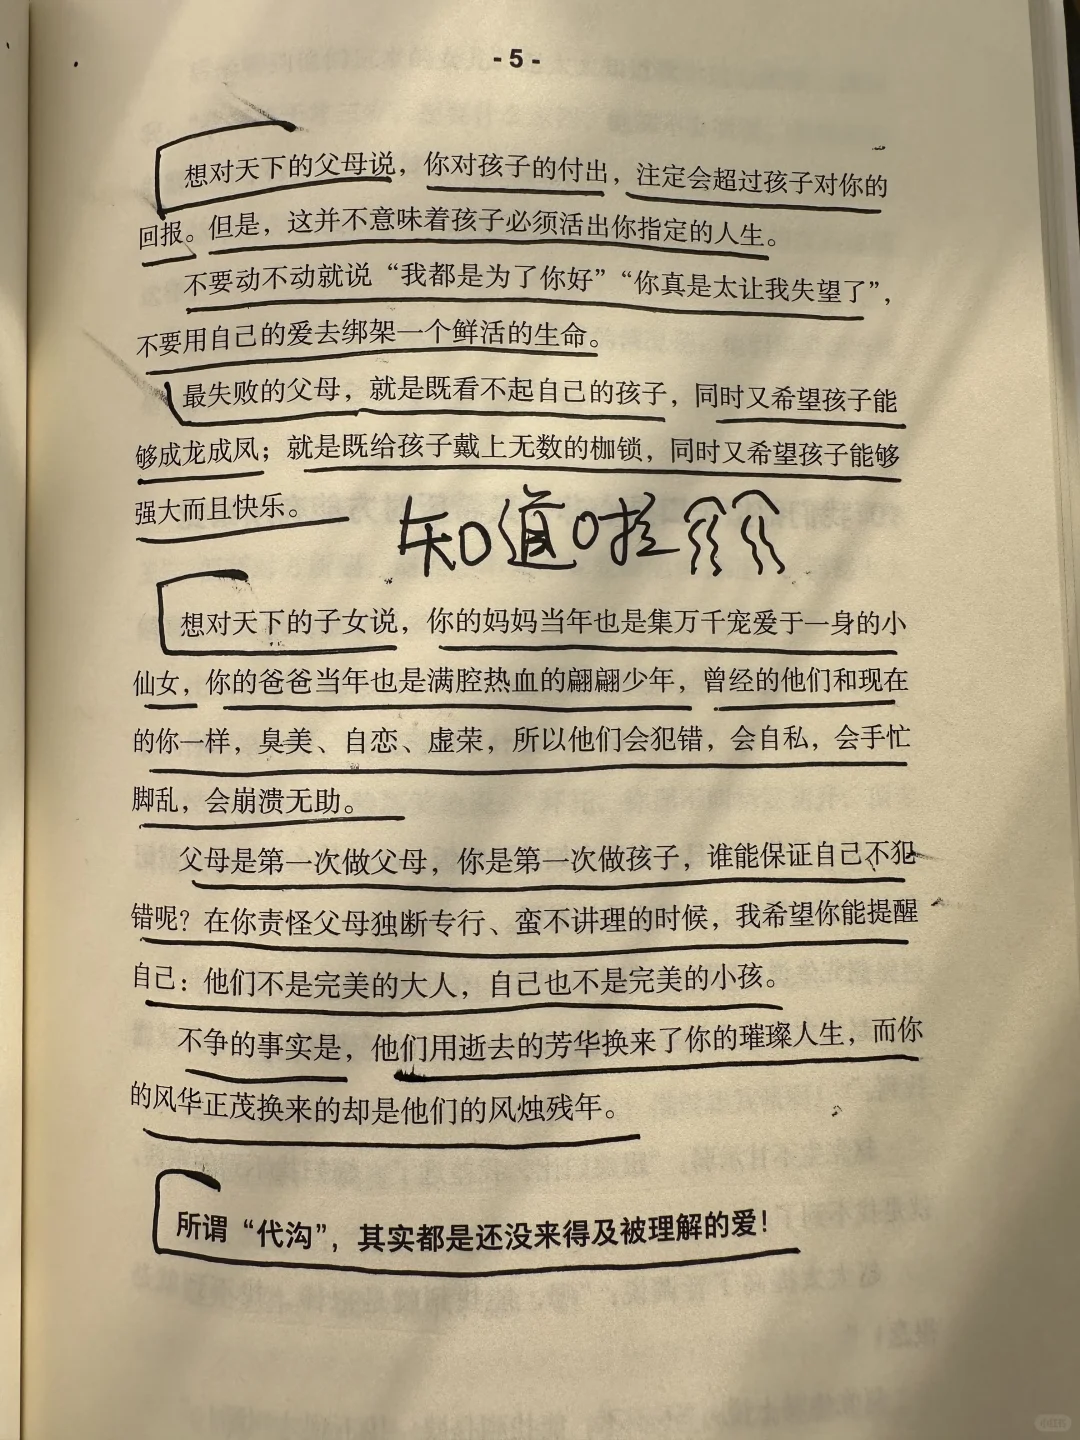 - 5 -
想对天下的父母说，你对孩子的付出，注定会超过孩子对你的
回报。但是，这并不意味着孩子必须活出你指定的人生。
不要动不动就说“我都是为了你好”“你真是太让我失望了”，
不要用自己的爱去绑架一个鲜活的生命。
最失败的父母，就是既看不起自己的孩子，同时又希望孩子能
够成龙成凤；就是既给孩子戴上无数的枷锁，同时又希望孩子能够
强大而且快乐。
知道啦
想对天下的子女说，你的妈妈当年也是集万千宠爱于一身的小
仙女，你的爸爸当年也是满腔热血的翩翩少年，曾经的他们和现在
的你一样，臭美、自恋、虚荣，所以他们会犯错，会自私，会手忙
脚乱，会崩溃无助。
父母是第一次做父母，你是第一次做孩子，谁能保证自己不犯
错呢？在你责怪父母独断专行、蛮不讲理的时候，我希望你能提醒
自己：他们不是完美的大人，自己也不是完美的小孩。
不争的事实是，他们用逝去的芳华换来了你的璀璨人生，而你
的风华正茂换来的却是他们的风烛残年。
所谓“代沟”，其实都是还没来得及被理解的爱！
小红书